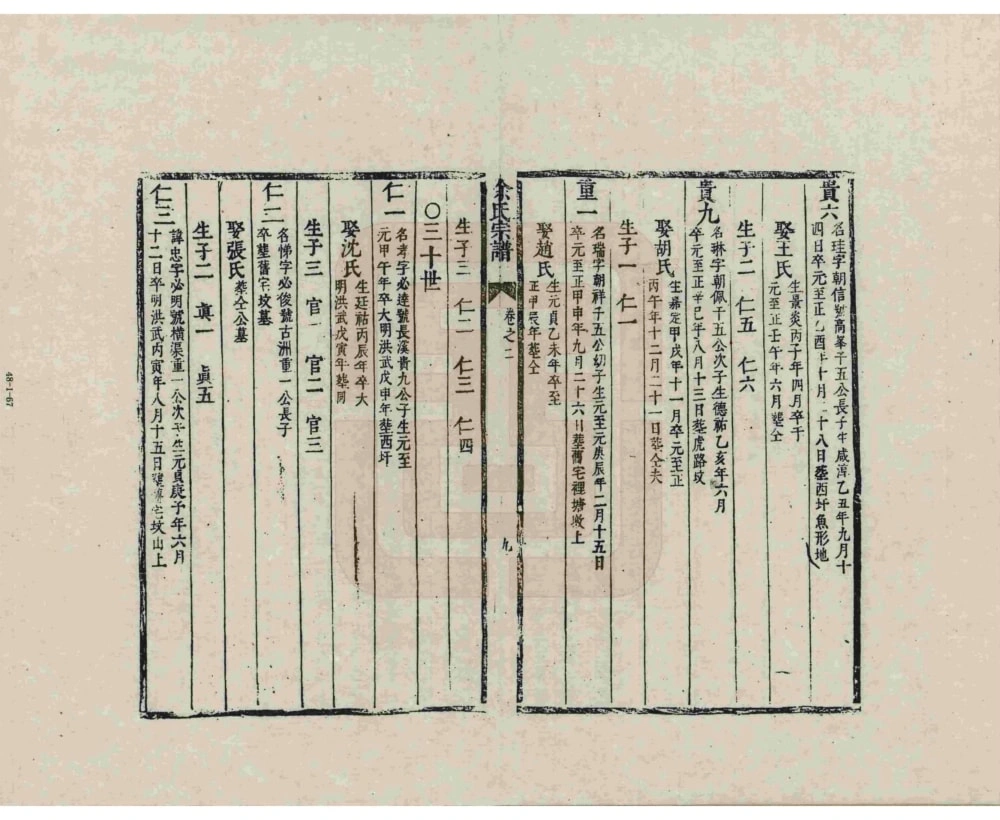 貴六
名珪字朝信號高峯千五公長子生咸淳乙丑年九月十
四日卒元至正乙酉年十月二十八日塟西圩魚形地
娶王氏
生景炎丙子年四月卒于
元至正壬午年六月塟仝
生子二 仁五 仁六
貴九
名琳字朝佩千五公次子生德祐乙亥年六月
卒元至正辛巳年八月十三日塟虎路坟
娶胡氏
生嘉定甲戌年十一月卒元至正
丙午年十二月二十一日塟仝夫
生子一 仁一
重一
名瑞字朝祥千五公幼子生元至元庚辰年二月十五日
卒元至正甲申年九月二十六日塟舊宅裡塘墩上
娶趙氏
生元貞乙未年卒至
正甲辰年塟仝
余氏宗譜
卷之二
九
生子三 仁二 仁三 仁四
○三十世
仁一
名孝字必達號長溪貴九公子生元至
元甲午年卒大明洪武戊申年塟西圩
娶沈氏
生延祐丙辰年卒大
明洪武戊寅年塟同
生子三 官一 官二 官三
仁二
名悌字必俊號古洲重一公長子
卒塟舊宅坟墓
娶張氏
塟仝公墓
生子二 眞一 眞五
仁三
諱忠字必明號橫渠重一公次子生元貞庚子年六月
十二日卒明洪武丙寅年八月十五日塟舊宅坟山上
48-1-67